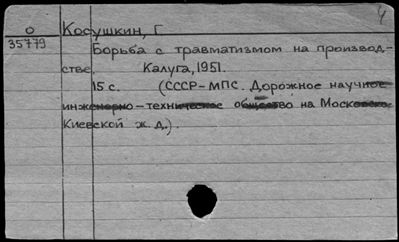 4
О Косушкин, Г
35779
Борьба с травматизмом на производ-
стве. Калуга, 1951.
15 с. (СССР-МПС. Дорожное научное
инженерно-техническое общество на Московско
Киевской ж.д.).